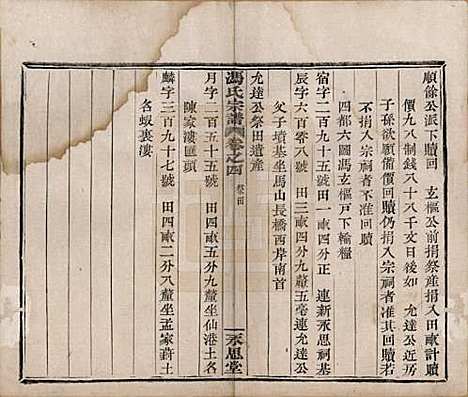 順餘公派下贖回　玄樞公前捐祭產捐入田畝計贖
價九八制錢八十八千文日後如　允達公近房
子孫欲願備價回贖仍捐入宗祠者准其回贖若
不捐入宗祠者不准回贖
四都六圖馮玄樞戶下輸糧
宿字二百九十八號　田一畝四分正　連新永思祠基
辰字六百零八號　田三畝四分九釐五毫連允達公
父子墳基坐馬山長橋西岸南首
允達公祭田遺產
馮氏宗譜　卷之四　祭田　一　永思堂
月字二百五十五號　田四畝四分九釐坐仙港土名
陳家漊匯頭
麟字三百九十七號　田四畝二分八釐坐孟家葑土
名蝦裏漊